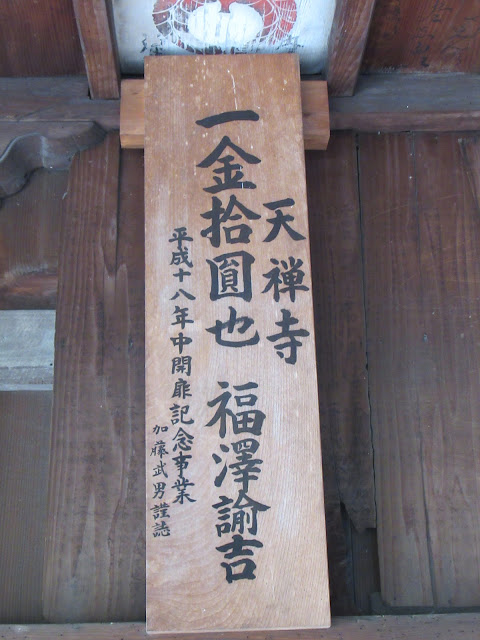 天禅寺
一金拾圓也 福澤諭吉
平成十八年中開扉記念事業
加藤武男謹誌